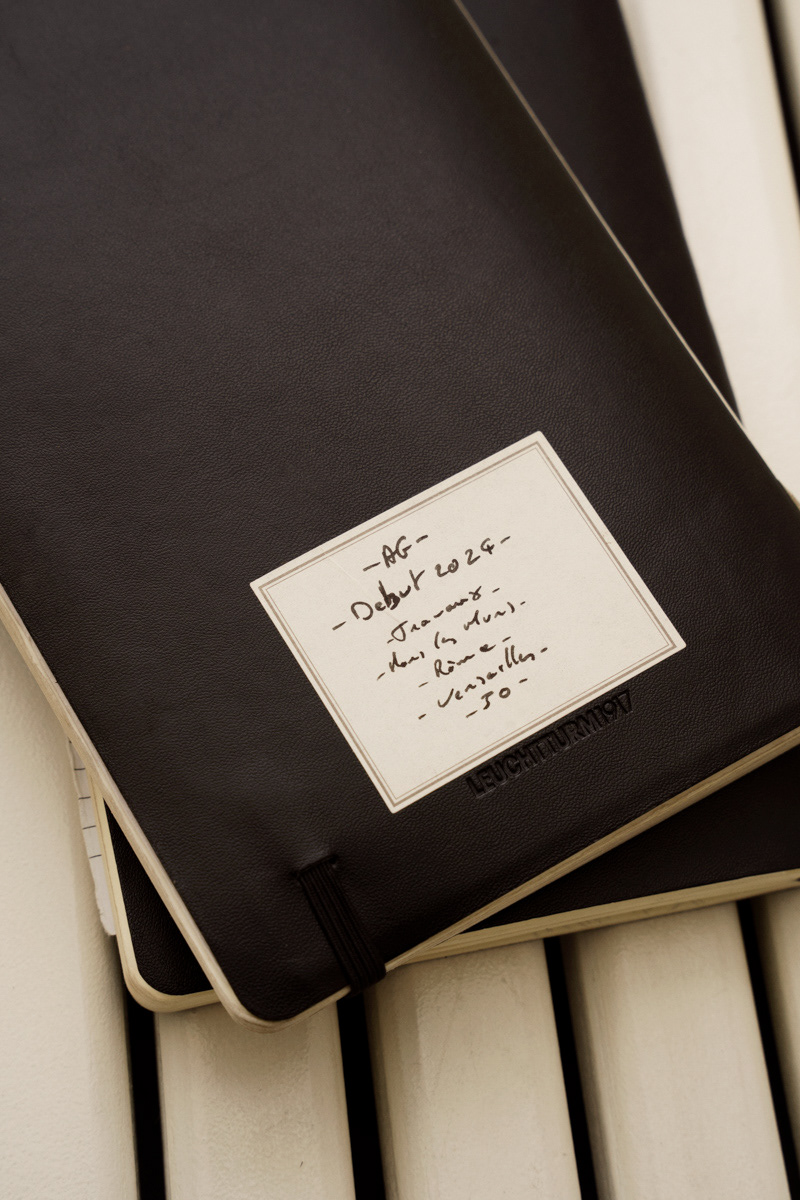 -AG-
- Debut 2024-
-Travaux -
-dans les murs.-
- Rome -
- Versailles -
- JO -
LEUCHTTURM1917